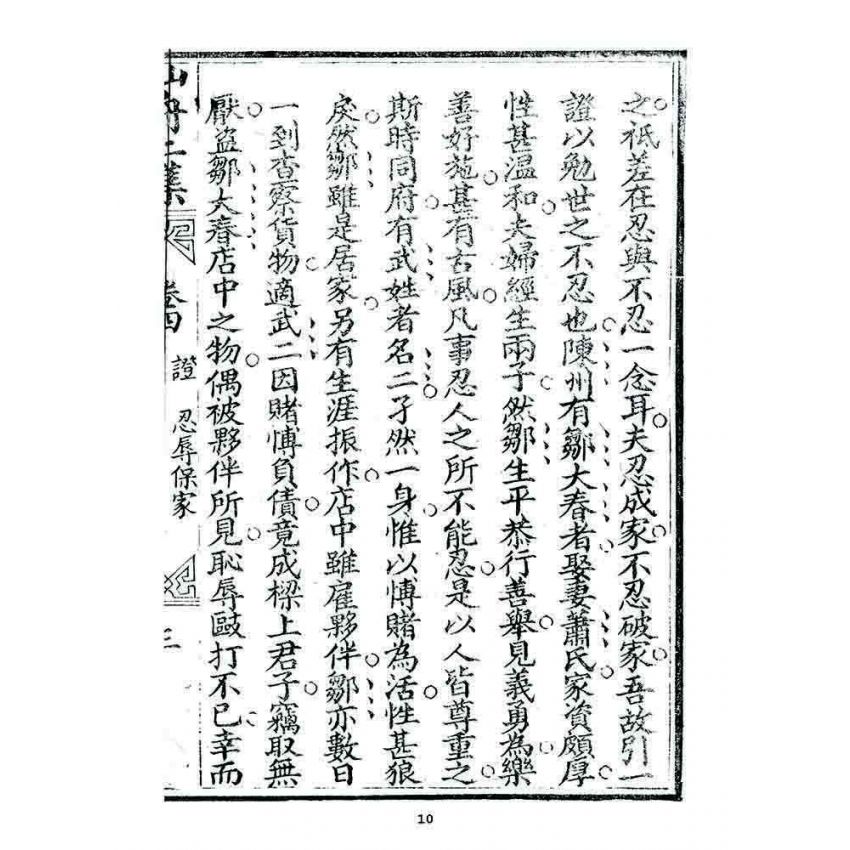 之祗差在忍與不忍一念耳夫忍成家不忍破家吾故引一
證以勉世之不忍也陳州有鄒大春者娶妻蕭氏家資頗厚
性甚溫和夫婦經生兩子然鄒生平恭行善舉見義勇為樂
善好施甚有古風凡事忍人之所不能忍是以人皆尊重之
斯時同府有武姓者名二孑然一身惟以愽賭為活性甚狼
戾然鄒雖是居家另有生涯振作店中雖雇夥伴鄒亦數日
一到查察貨物適武二因賭愽負債竟成樑上君子竊取無
厭盜鄒大春店中之物偶被夥伴所見恥辱毆打不已幸而
二集 卷四 證 忍辱保家 三
10